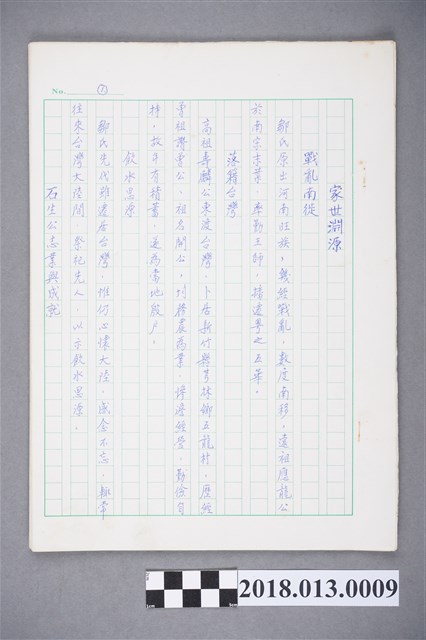 No. ①
家世淵源
戰亂南徙
鄒氏原出河南旺族，幾經戰亂，數度南移，遠祖應龍公
於南宋末葉，率勤王師，播遷粵之五華。
落籍台灣
高祖壽麟公東渡台灣，卜居新竹縣芎林鄉五龍村，歷經
曾祖公、祖公，均務農為業，經營，勤儉自
持，故年有積蓄，遂為當地殷戶。
飲水思源
鄒氏先代雖遠居台灣，惟仍心懷大陸，感念不忘，輒常
往來台灣大陸間，祭祀先人，以示飲水思源。
石生公志業與成就
2018.013.0009